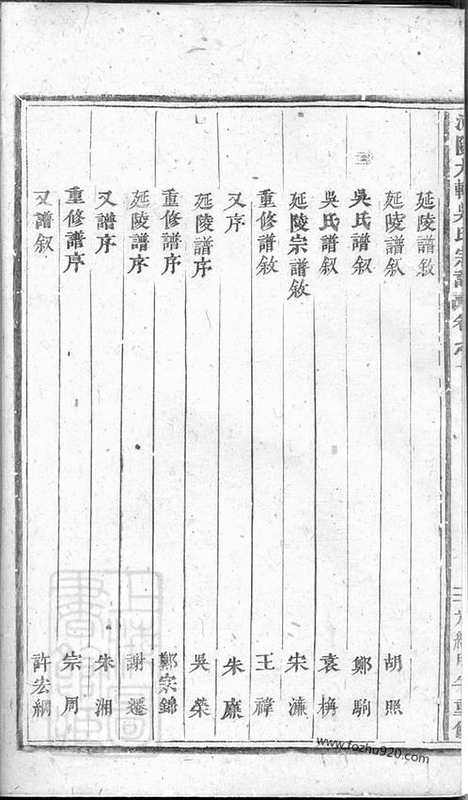 延陵譜敘
延陵譜敘 胡照
吳氏譜叙 鄭駒
吳氏譜叙 袁桷
延陵宗譜敘 宋濂
重修譜敘 王禕
又序 朱廉
延陵譜序 吳榮
重修譜序 鄭宗錦
延陵譜序 謝遷
又譜序 朱湘
重修譜序 宗周
又譜叙 許宏綱
www.fozhu920.com